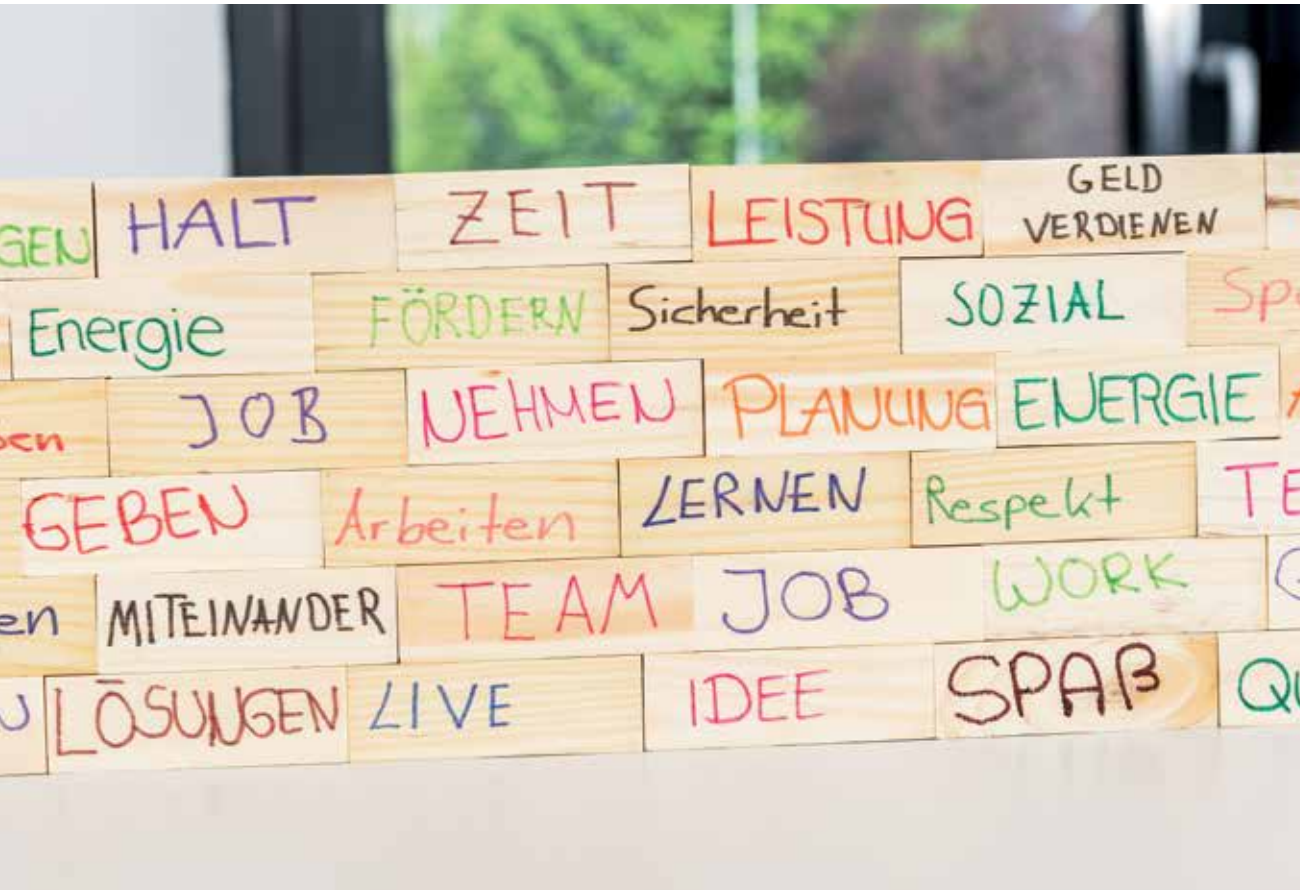 GEN HALT ZEIT LEISTUNG GELD
VERDIENEN
Energie FÖRDERN Sicherheit SOZIAL Sp
JOB NEHMEN PLANUNG ENERGIE
GEBEN Arbeiten LERNEN Respekt TE
en MITEINANDER TEAM JOB WORK
U LÖSUNGEN LIVE IDEE SPAß QU